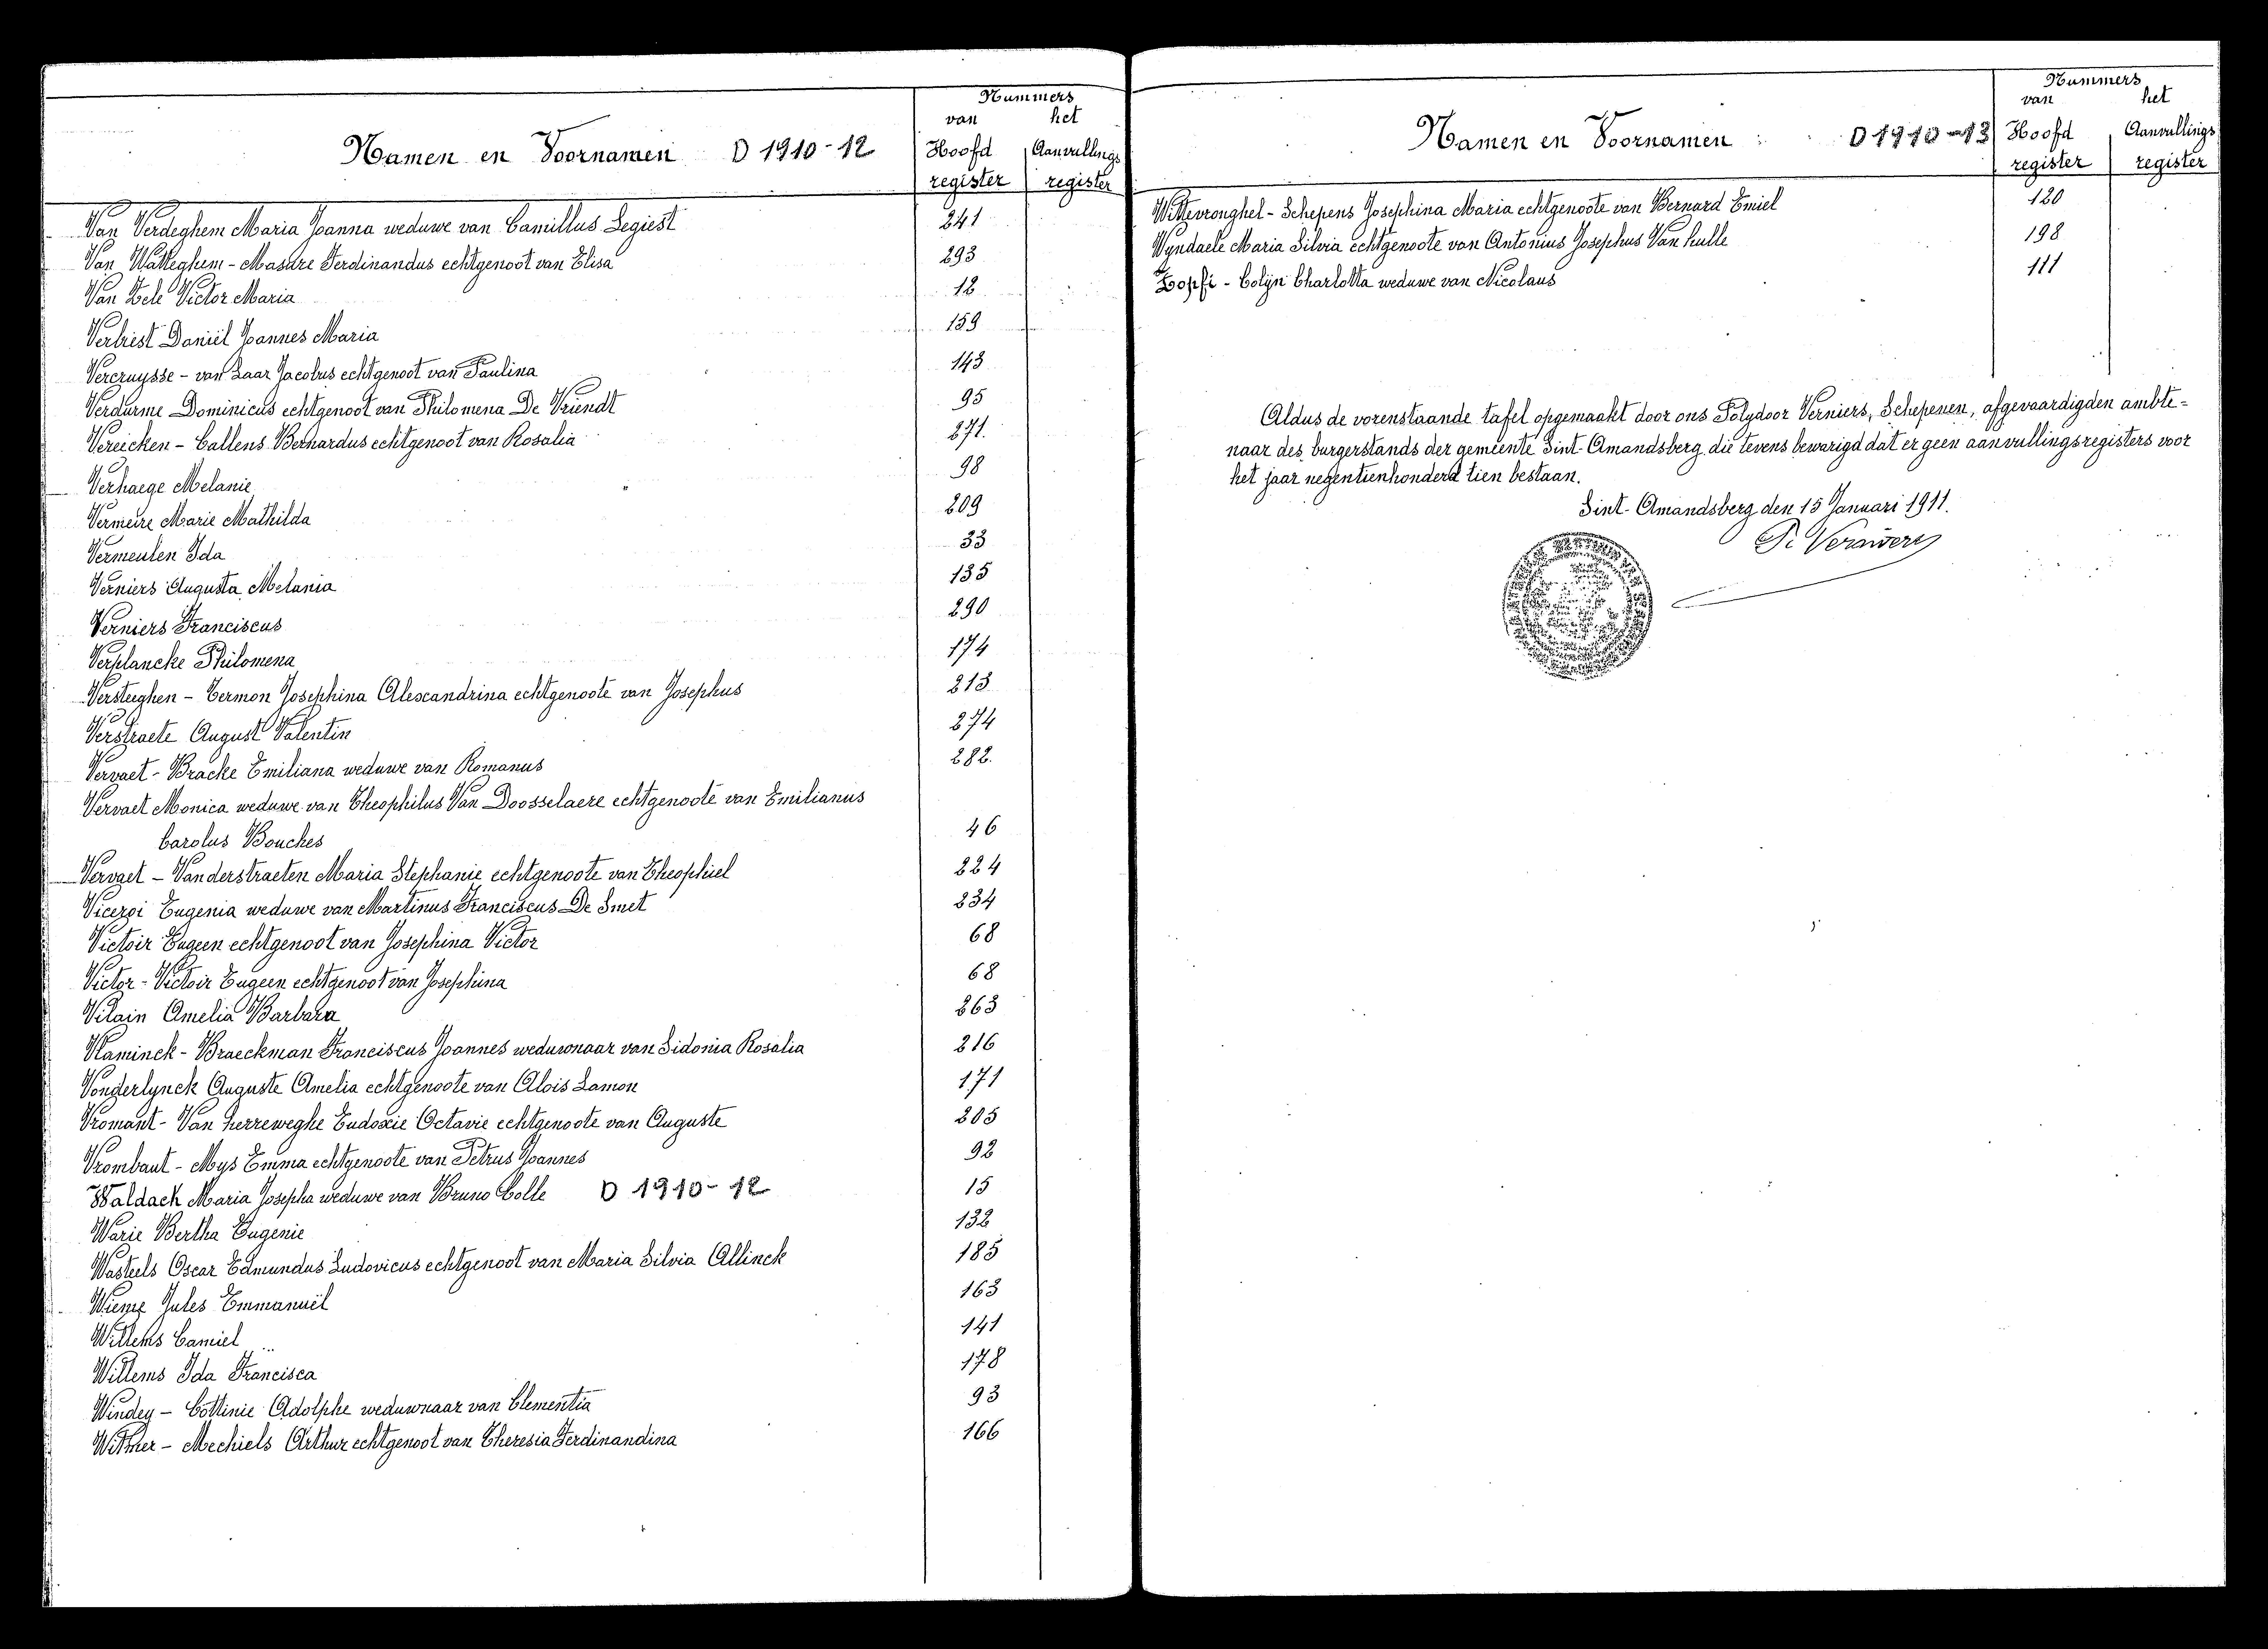 Nummers
van het
Namen en Voornamen D 1910-12 Hoofd Aanvullings
register register
Van Verdeghem Maria Joanna weduwe van Camillus Legiest 241
Van Watteghem - Masure Ferdinandus echtgenoot van Elisa 293
Van Zele Victor Maria 12
Verbist Daniël Joannes Maria 159
Vercruysse - van Laar Jacobus echtgenoot van Paulina 143
Verdurme Dominicus echtgenoot van Philomena De Vriendt 95
Vereicken - Callens Bernardus echtgenoot van Rosalia 271
Verhaege Melanie 98
Vermeire Marie Mathilda 209
Vermeulen Ida 33
Verniers Augusta Melania 135
Verniers Franciscus 290
Verplancke Philomena 174
Versteeghen - Termon Josephina Alexandrina echtgenoote van Josephus 213
Verstraete August Valentin 274
Vervaet - Bracke Emiliana weduwe van Romanus 282.
Vervaet Monica weduwe van Theophilus Van Doosselaere echtgenoote van Emilianus
Carolus Bouches 46
Vervaet - Vanderstraeten Maria Stephanie echtgenoote van Theophiel 224
Viceroi Eugenia weduwe van Martinus Franciscus De Smet 234
Victoir Eugeen echtgenoot van Josephina Victor 68
Victor - Victoir Eugeen echtgenoot van Josephina 68
Vilain Amelia Barbara 263
Vlaminck - Braeckman Franciscus Joannes weduwnaar van Sidonia Rosalia 216
Vonderlynck Auguste Amelia echtgenoote van Alois Lamon 171
Vromant - Van herreweghe Eudoxie Octavie echtgenoote van Auguste 205
Vrombaut - Mys Emma echtgenoote van Petrus Joannes 92
Waldack Maria Josepha weduwe van Bruno Colle D 1910-12 15
Warie Bertha Eugenie 132
Wasteels Oscar Edmundus Ludovicus echtgenoot van Maria Silvia Allinck 185
Wieme Jules Emmanuël 163
Willems Camiel 141
Willems Ida Francisca 178
Windey - Cottinie Adolphe weduwnaar van Clementia 93
Witmer - Mechiels Arthur echtgenoot van Theresia Ferdinandina 166
Nummers
van het
Namen en Voornamen D 1910-13 Hoofd Aanvullings
register register
Wittevronghel - Schepens Josephina Maria echtgenoote van Bernard Emiel 120
Wyndaele Maria Silvia echtgenoote van Antonius Josephus Van hulle 198
Zopfi - Colyn Charlotta weduwe van Nicolaus 111
Aldus de vorenstaande tafel opgemaakt door ons Polydoor Verniers, Schepenen, afgevaardigden ambte-
naar des burgerstands der gemeente Sint-Amandsberg die tevens bewarigd dat er geen aanvullingsregisters voor
het jaar negentienhonderd tien bestaan.
Sint-Amandsberg den 15 Januari 1911.